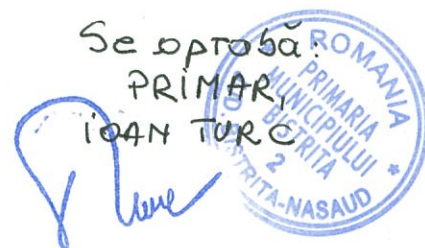 Se aprobă:
PRIMAR,
IOAN TURC
ROMANIA
PRIMARIA
MUNICIPIULUI
BISTRITA
2
BISTRITA-NASAUD
*